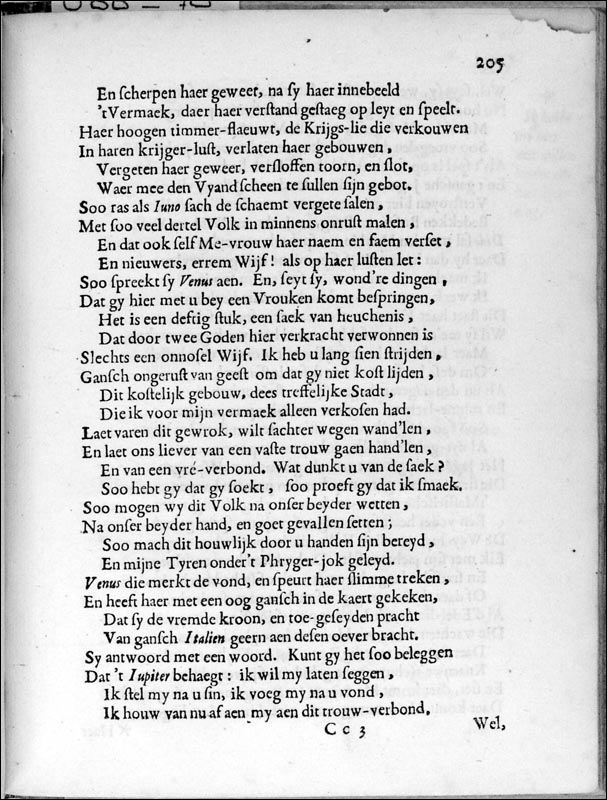 205
En scherpen haer geweer, na sy haer innebeeld
'tVermaek, daer haer verstand gestaeg op leyt en speelt.
Haer hoogen timmer-flaeuwt, de Krijgs-lie die verkouwen
In haren krijger-lust, verlaten haer gebouwen,
Vergeten haer geweer, versloffen toorn, en slot,
Waer mee den Vyand scheen te sullen sijn gebot.
Soo ras als Iuno sach de schaemt vergete salen,
Met soo veel dertel Volk in minnens onrust malen,
En dat ook self Me-vrouw haer naem en faem verset,
En nieuwers, errem Wijf! als op haer lusten let:
Soo spreekt sy Venus aen. En, seyt sy, wond're dingen,
Dat gy hier met u bey een Vrouken komt bespringen,
Het is een deftig stuk, een saek van heuchenis,
Dat door twee Goden hier verkracht verwonnen is
Slechts een onnosel Wijf. Ik heb u lang sien strijden,
Gansch ongerust van geest om dat gy niet kost lijden,
Dit kostelijk gebouw, dees treffelijke Stadt,
Die ik voor mijn vermaek alleen verkosen had.
Laet varen dit gewrok, wilt sachter wegen wand'len,
En laet ons liever van een vaste trouw gaen hand'len,
En van een vré-verbond. Wat dunkt u van de saek?
Soo hebt gy dat gy soekt, soo proeft gy dat ik smaek.
Soo mogen wy dit Volk na onser beyder wetten,
Na onser beyder hand, en goet gevallen setten;
Soo mach dit houwlijk door u handen sijn bereyd,
En mijne Tyren onder't Phryger-jok geleyd.
Venus die merkt de vond, en speurt haer slimme treken,
En heeft haer met een oog gansch in de kaert gekeken,
Dat sy de vremde kroon, en toe-geseyden pracht
Van gansch Italien geern aen desen oever bracht.
Sy antwoord met een woord. Kunt gy het soo beleggen
Dat 't Iupiter behaegt: ik wil my laten seggen,
Ik stel my na u sin, ik voeg my na u vond,
Ik houw van nu af aen my aen dit trouw-verbond.
Cc 3 Wel,